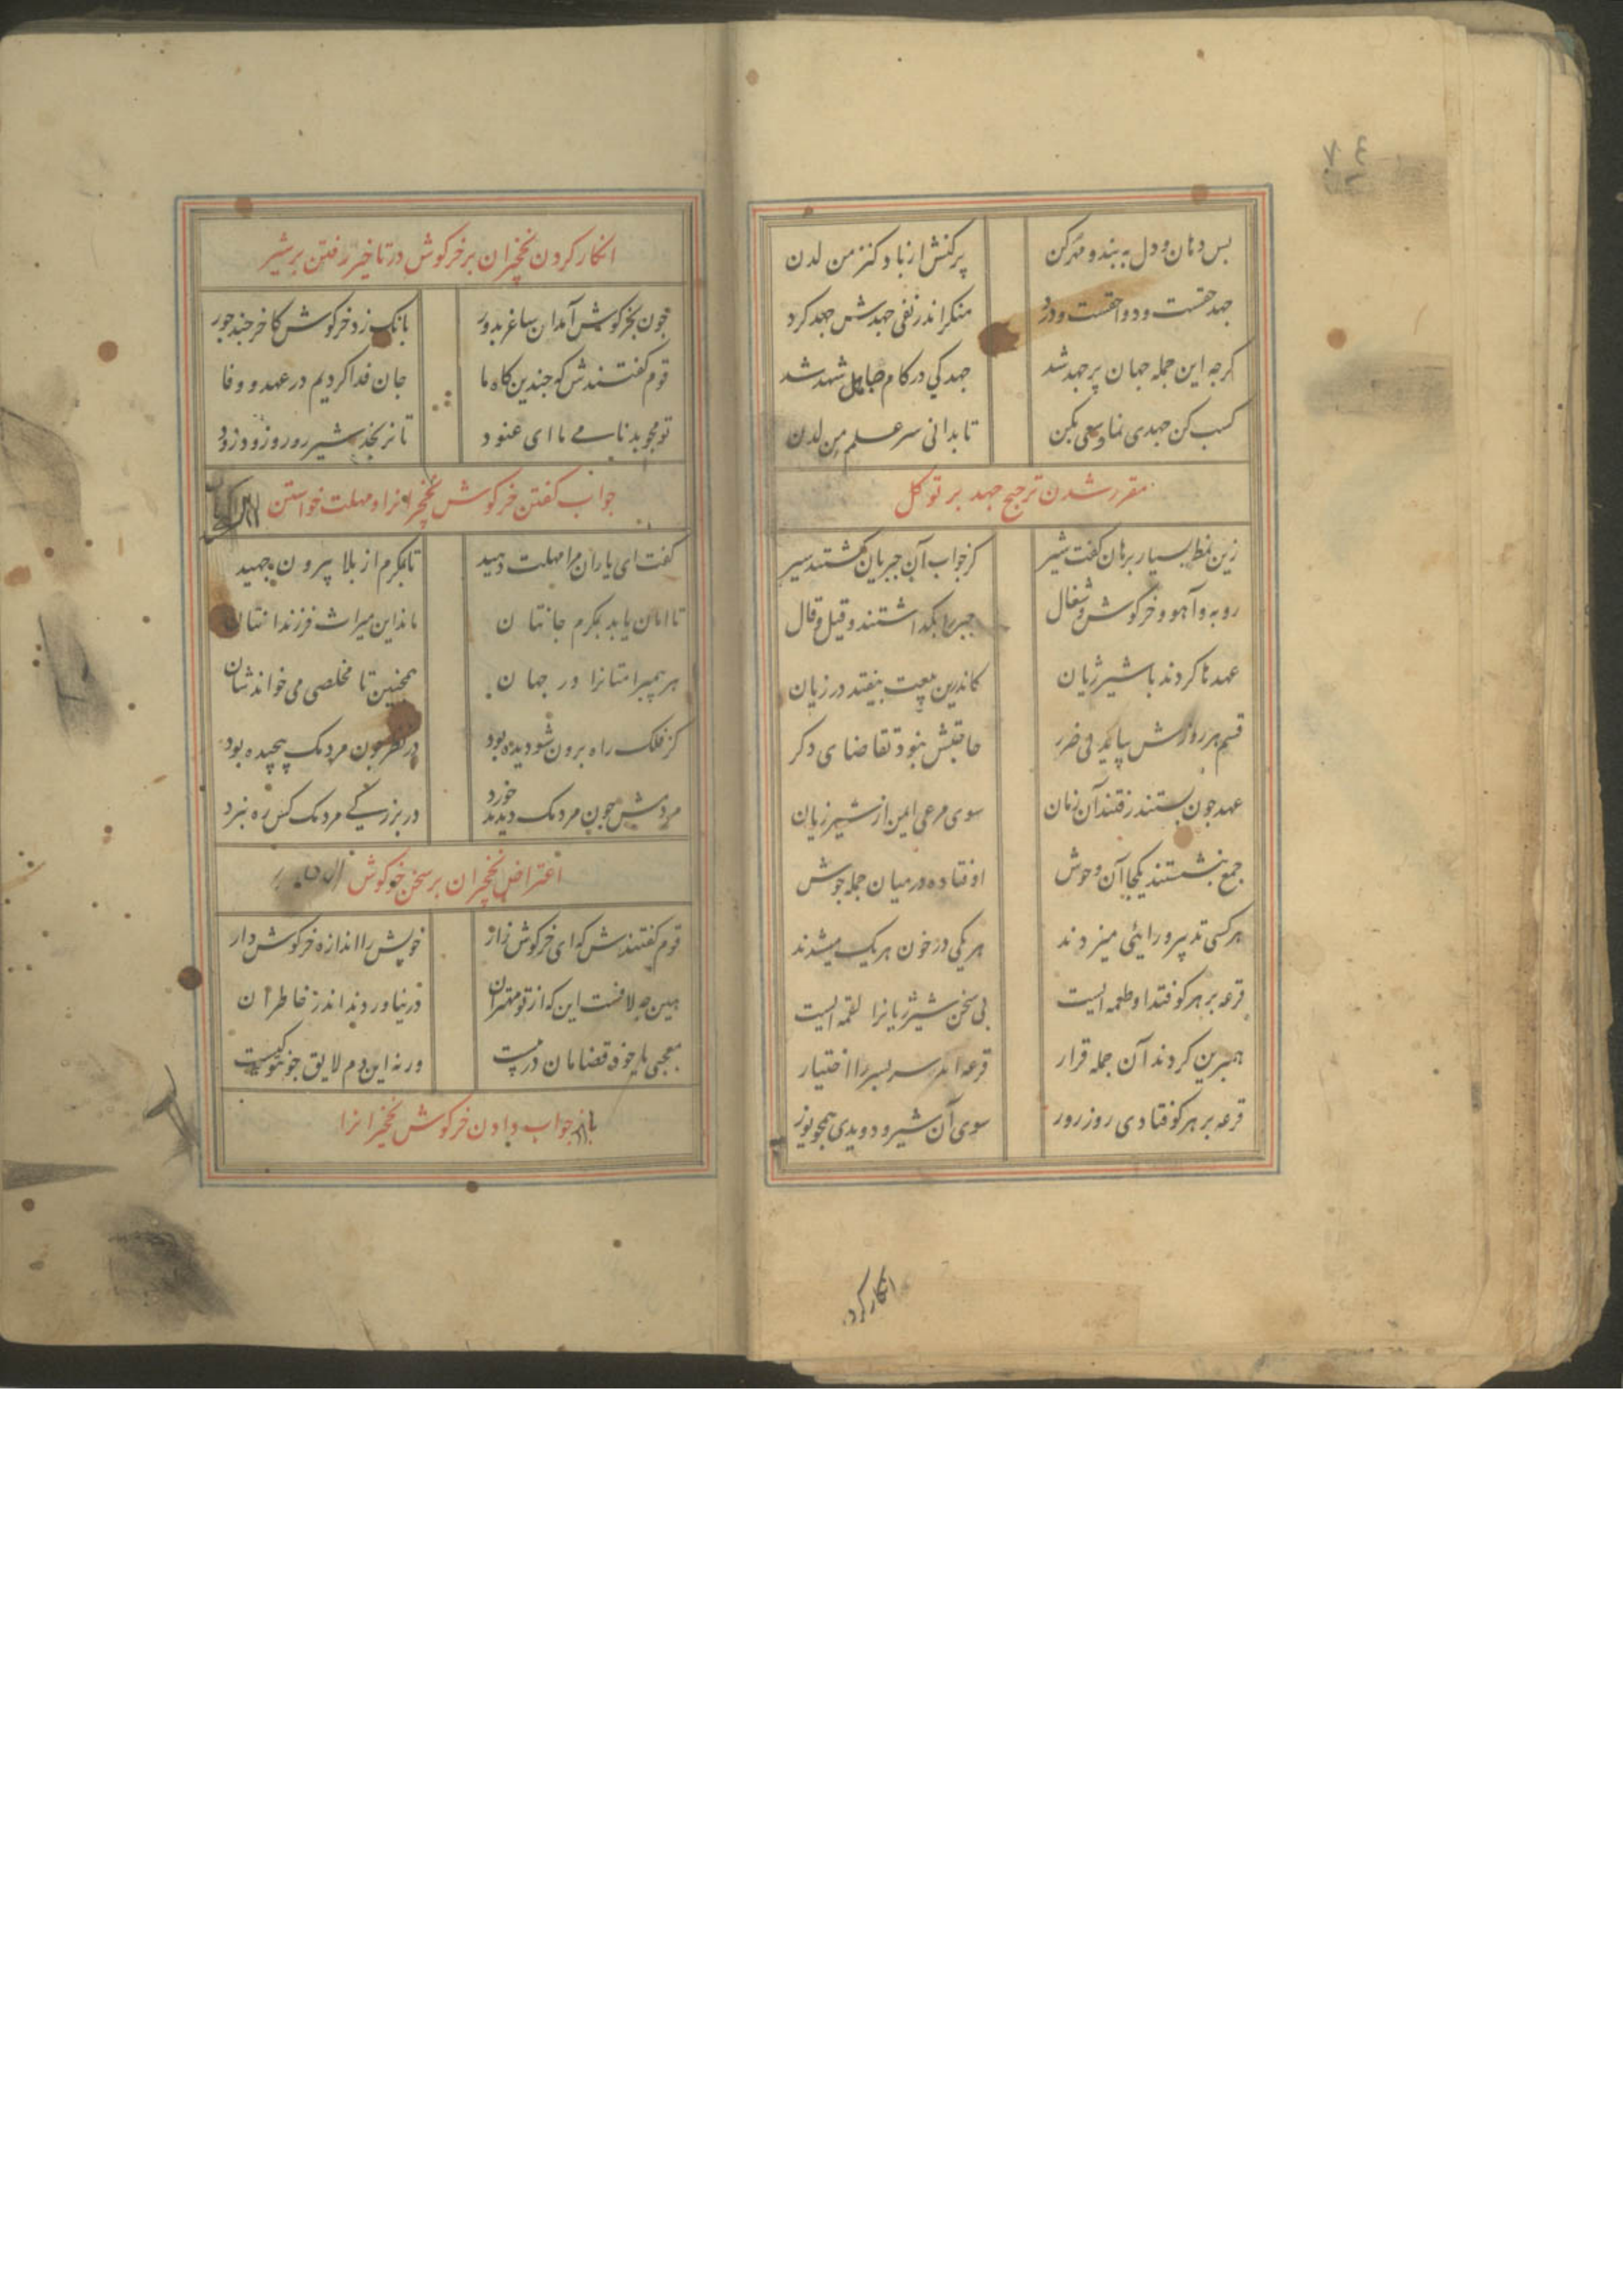 ۷٤
بس دهان و دل ببند و مهر کن
پر کنش از باد کنز من لدن
جهد حقست و دوا حقست و درد
منکر اندر نفی جهدش جهد کرد
کرچه این جمله جهان پر جهد شد
جهد کی در کام جاهل شهد شد
کسب کن جهدی نما و سعی بکن
تا بدانی سر علم من لدن
مقرر شدن ترجیح جهد بر توکل
زین نمط بسیار برهان کفت شیر
کز جواب آن جبریان کشتند سیر
روبه و آهو و خرکوش و شغال
جبر را بکذاشتند و قیل و قال
عهدها کردند با شیر ژیان
کاندرین بیعت نیفتد در زیان
قسم هر روزش بیاید بی ضرر
حاجتش نبود تقاضای دکر
عهد چون بستند رفتند آن زمان
سوی مرعی ایمن از شیر ژیان
جمع بنشستند یکجا آن وحوش
اوفتاده در میان جمله جوش
هر کسی تدبیر و رایی میزدند
هر یکی در خون هر یک میشدند
قرعه بر هر کو فتد او طعمه ایست
بی سخن شیر ژیانرا لقمه ایست
همبرین کردند آن جمله قرار
قرعه آمد سر بسر را اختیار
قرعه بر هر کو فتادی روز روز
سوی آن شیر او دویدی همچو یوز
انکار کرد
انکار کردن نخچیران بر خرکوش در تاخیر رفتن بر شیر
چون بخرکوش آمد آن ساغر بدور
بانک زد خرکوش کاخر چند جور
قوم کفتندش که چندین کاه ما
جان فدا کردیم در عهد و وفا
تو مجو بدنامی ما ای عنود
تا نرنجد شیر رو رو زود زود
جواب کفتن خرکوش نخچیرانرا و مهلت خواستن
کفت ای یاران مرا مهلت دهید
تا بمکرم از بلا بیرون جهید
تا امان یابد بمکرم جانتان
ماند این میراث فرزندانتان
هر پیمبر امتانرا در جهان
همچنین تا مخلصی می خواندشان
کز فلک راه برون شو دیده بود
در نظر چون مردمک پیچیده بود
مردمش چون مردمک دیدند خورد
در بزرکی مردمک کس ره نبرد
اعتراض نخچیران بر سخن خرکوش
قوم کفتندش که ای خرکوش دار
خویش را اندازه خرکوش دار
هین چه لافست این که از تو مهتران
در نیاوردند اندر خاطر آن
معجبی یا خود قضامان در پیست
ورنه این دم لایق چون تو کیست
باز جواب دادن خرکوش نخچیرانرا